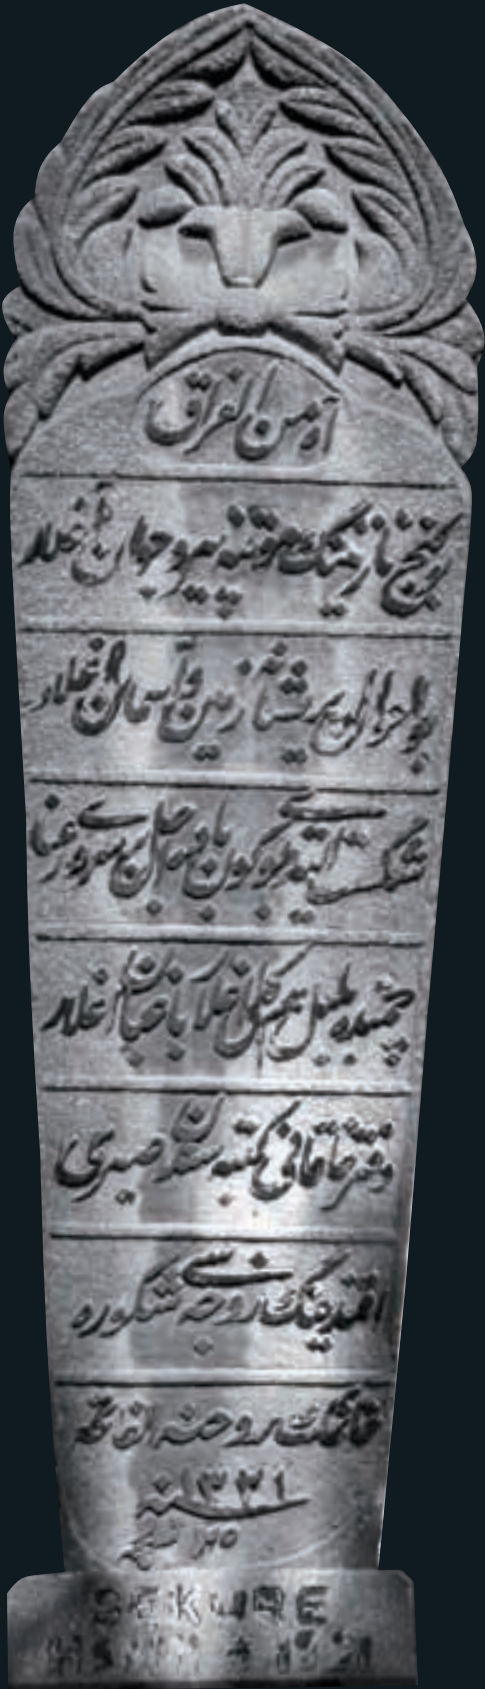 آه من الفراق
بو كنج نازنينك موتنه پير و جوان اغلار
بو احوال پريشانه زمين و آسمان اغلار
شكست ايتدى بوكون باد اجل بر سرو رعنايى
چمنده بلبل ايكلر گل اغلار باغبان اغلار
دفتر خاقانى كتبه سندن صبرى
افندينك زوجه سى شكوره
خانمك روحنه الفاتحه
سنه ١٣٣١
٢٥
ŞEKURE